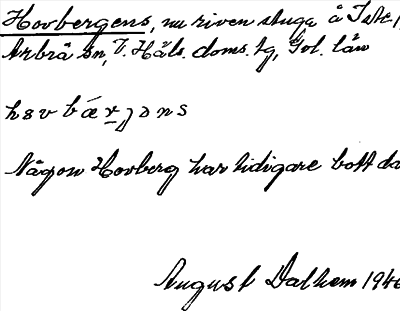 Hovbergens, nu riven stuga å
Arbrå sn, V. Häls. doms. tg, Gvl. län
Någon Hovberg har tidigare bott
August Dalhem 194